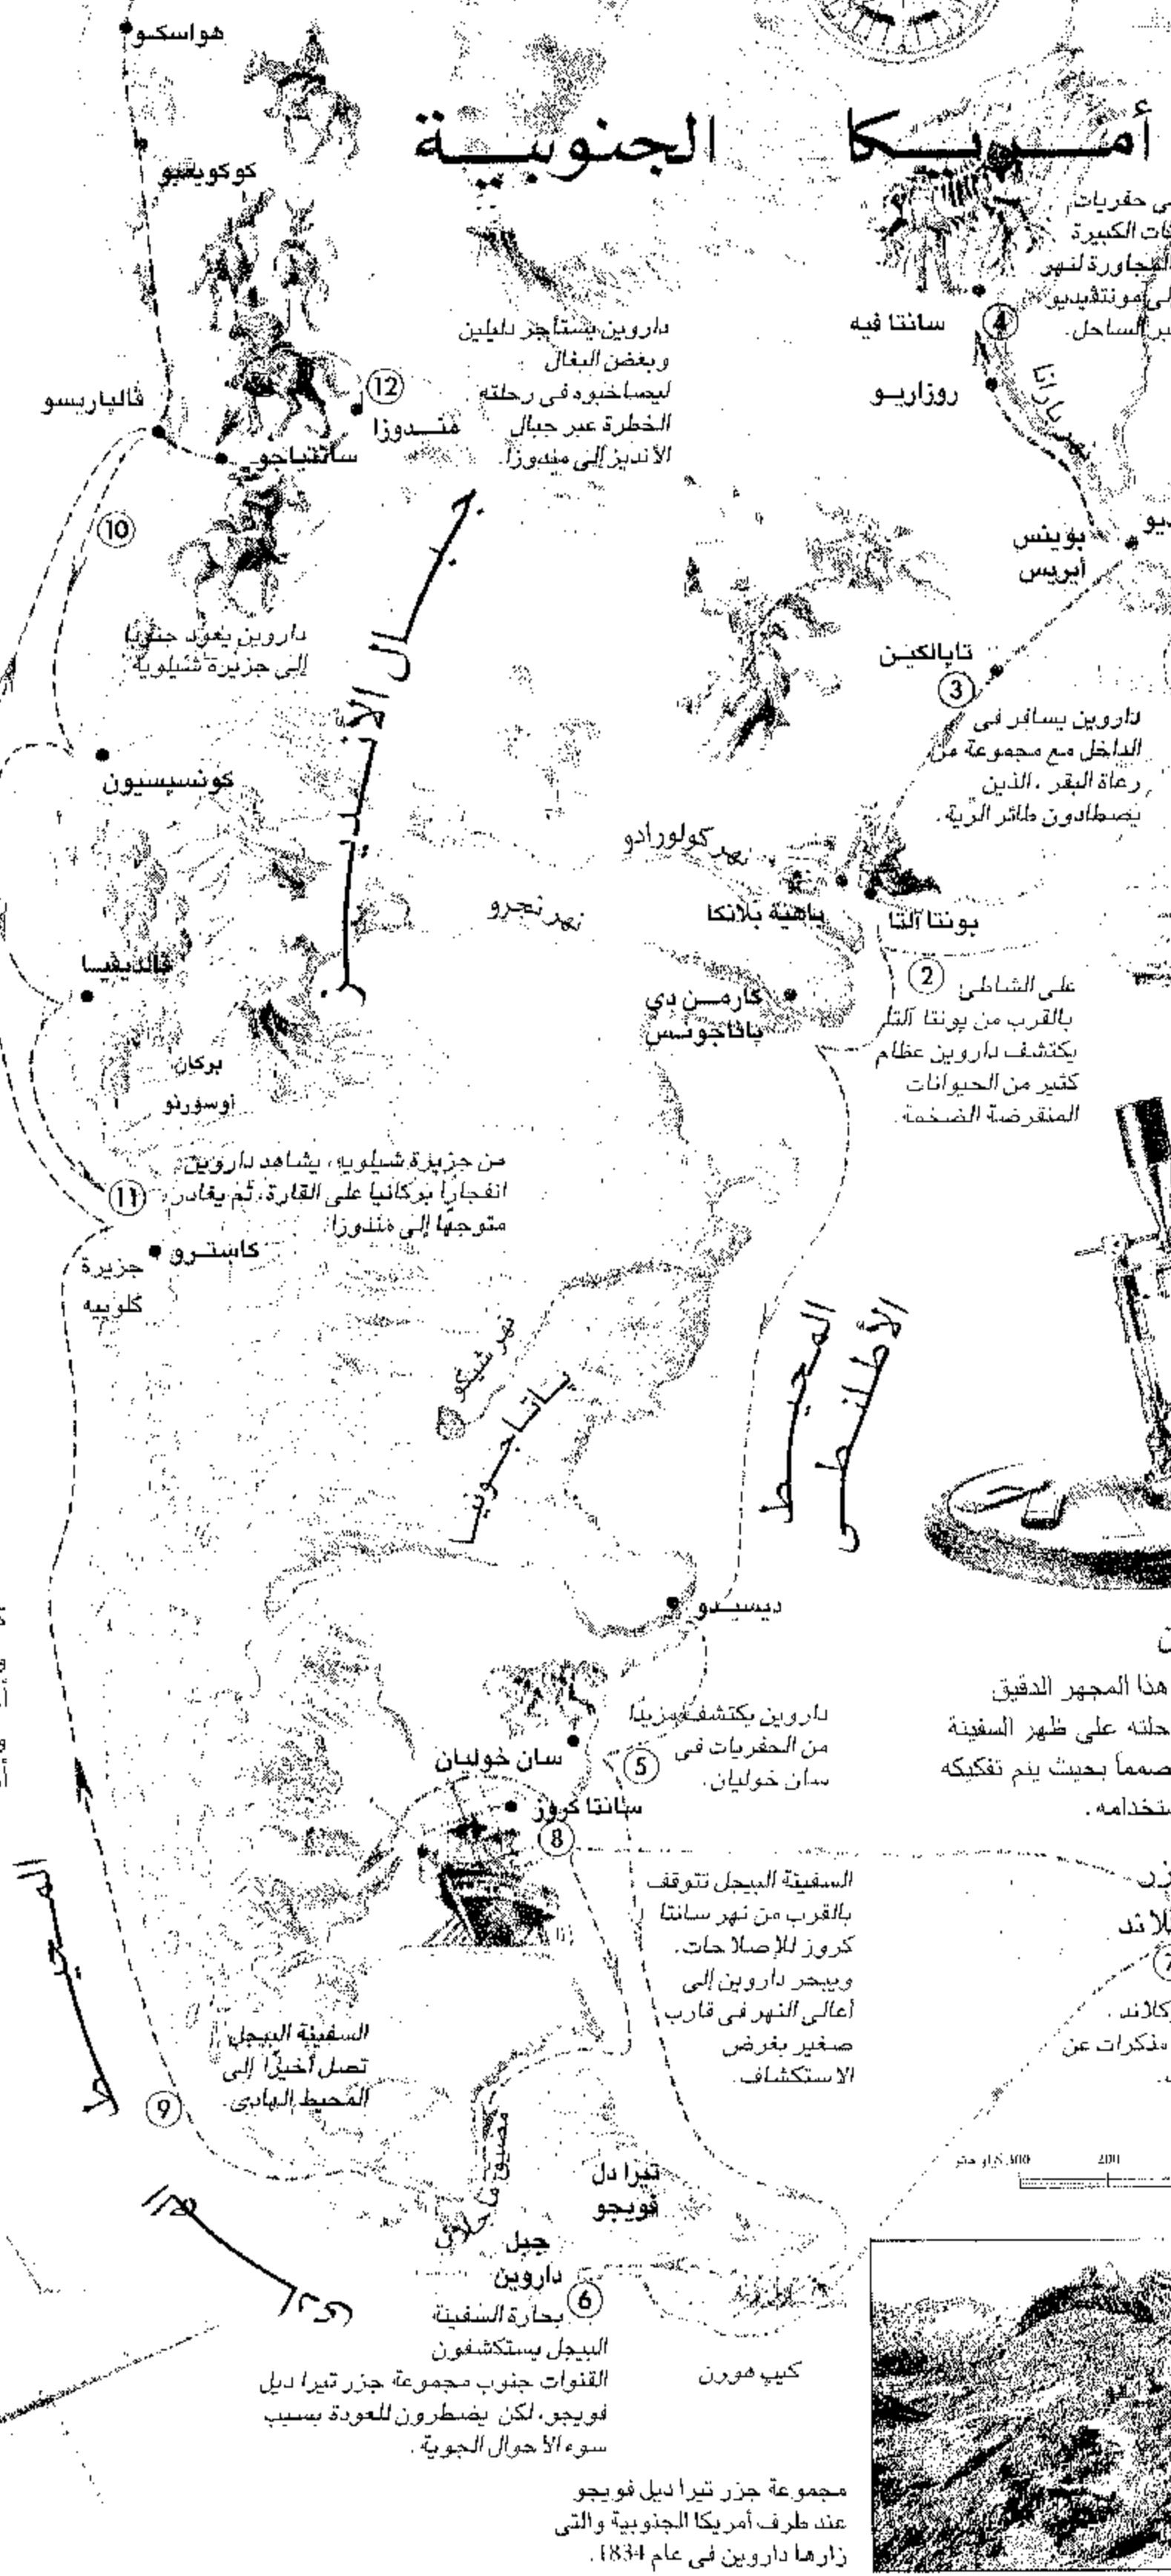 هواسكو
أمريكا الجنوبية
كوكويمبو
حفريات
الكبيرة
المجاورة لنهر
مونتڤيديو
الساحل.
سانتا فيه
④
روزاريو
نهر بارانا
داروين يستأجر دليلين
وبعض البغال
ليصاحبوه فى رحلته
الخطرة عبر جبال
الأنديز إلى مندوزا.
⑫
مندوزا
ڤالباريسو
سانتياجو
⑩
بوينس
أيريس
داروين يعود جنوبا
إلى جزيرة شيلويه
جبال الأنديز
تاپالكين
③
داروين يسافر فى
الداخل مع مجموعة من
رعاة البقر، الذين
يصطادون طائر الرية.
كونسبسيون
نهر كولورادو
نهر نجرو
باهية بلانكا
بونتا آلتا
②
على الشاطئ
بالقرب من پونتا آلتا
يكتشف داروين عظام
كثير من الحيوانات
المنقرضة الضخمة.
ڤالديڤيا
كارمن دي
باتاجونس
بركان
أوسورنو
من جزيرة شيلويه، يشاهد داروين
انفجارًا بركانيا على القارة، ثم يغادر
متوجهًا إلى مندوزا.
⑪
كاسترو
جزيرة
نهر شيكو
پاتاجونيا
المحيط
الأطلنطى
ديسيدو
هذا المجهر الدقيق
على ظهر السفينة
بحيث يتم تفكيكه
داروين يكتشف مزيدًا
من الحفريات فى
سان خوليان.
⑤
سان خوليان
سانتا كروز
⑧
السفينة البيجل تتوقف
بالقرب من نهر سانتا
كروز للإصلاحات.
ويبحر داروين إلى
أعالى النهر فى قارب
صغير بغرض
الاستكشاف.
مذكرات عن
المحيط
الهادى
السفينة البيجل
تصل أخيرًا إلى
المحيط الهادى.
⑨
مضيق ماجلان
تيرا دل
فويجو
300
200
جبل
داروين
⑥
بحارة السفينة
البيجل يستكشفون
القنوات جنوب مجموعة جزر تيرا ديل
فويجو، لكن يضطرون للعودة بسبب
سوء الأحوال الجوية.
كيب هورن
مجموعة جزر تيرا ديل فويجو
عند طرف أمريكا الجنوبية والتى
زارها داروين فى عام 1834.